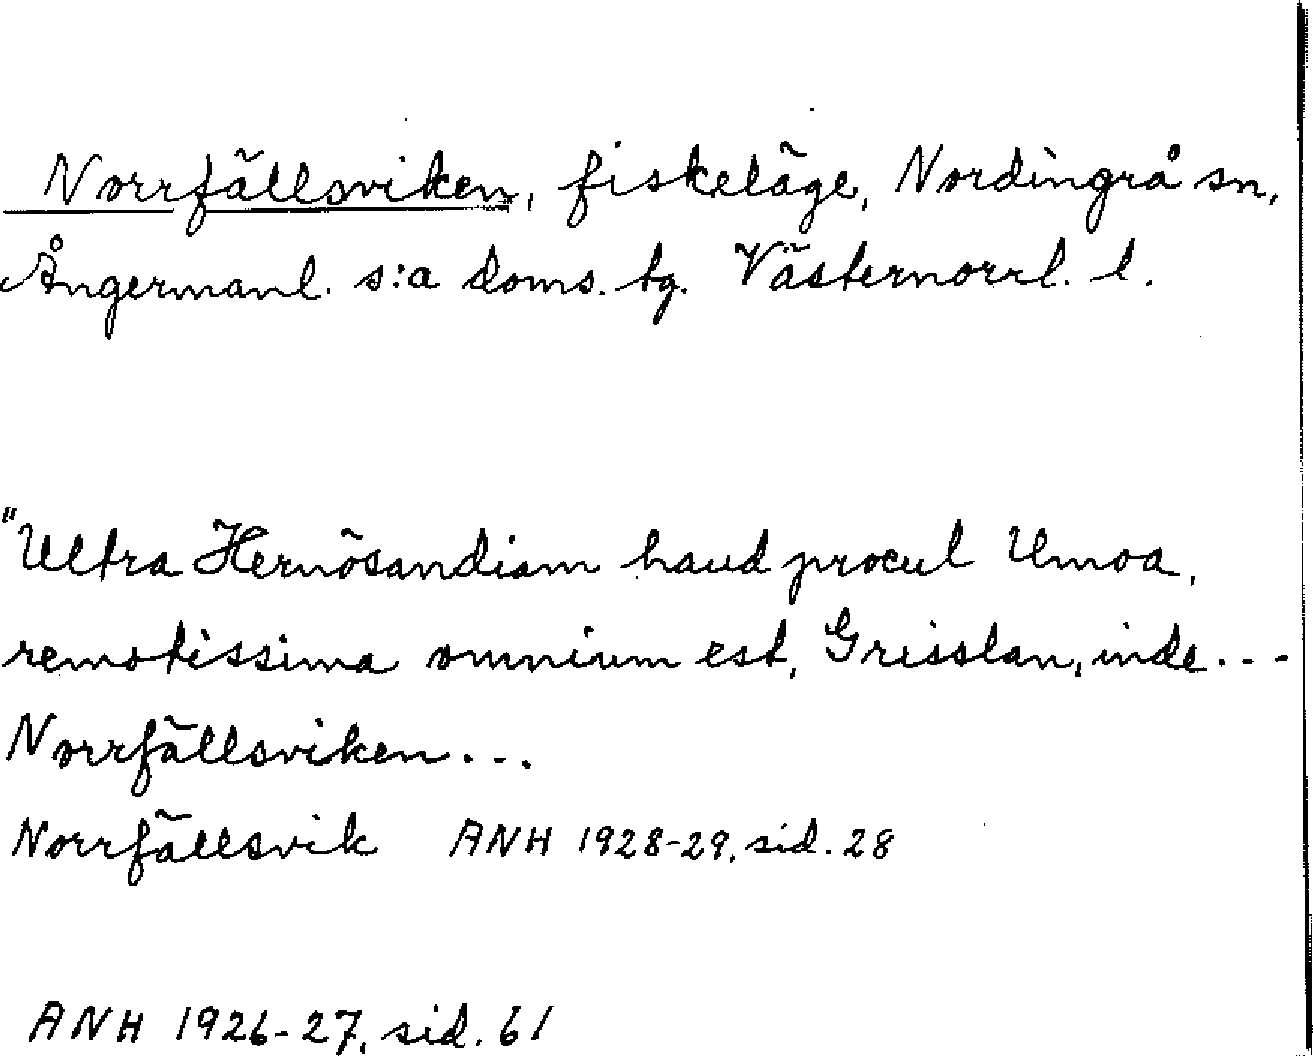 Norrfällsviken, fiskeläge, Nordingrå sn,
Ångermanl. s:a doms. tg. Västernorrl. l.
"Ultra Hernösandiam haud procul Umoa,
remotissima omnium est, Grisslan, inde...
Norrfällsviken...
Norrfällsvik ANH 1928-29, sid. 28
ANH 1926-27, sid. 61